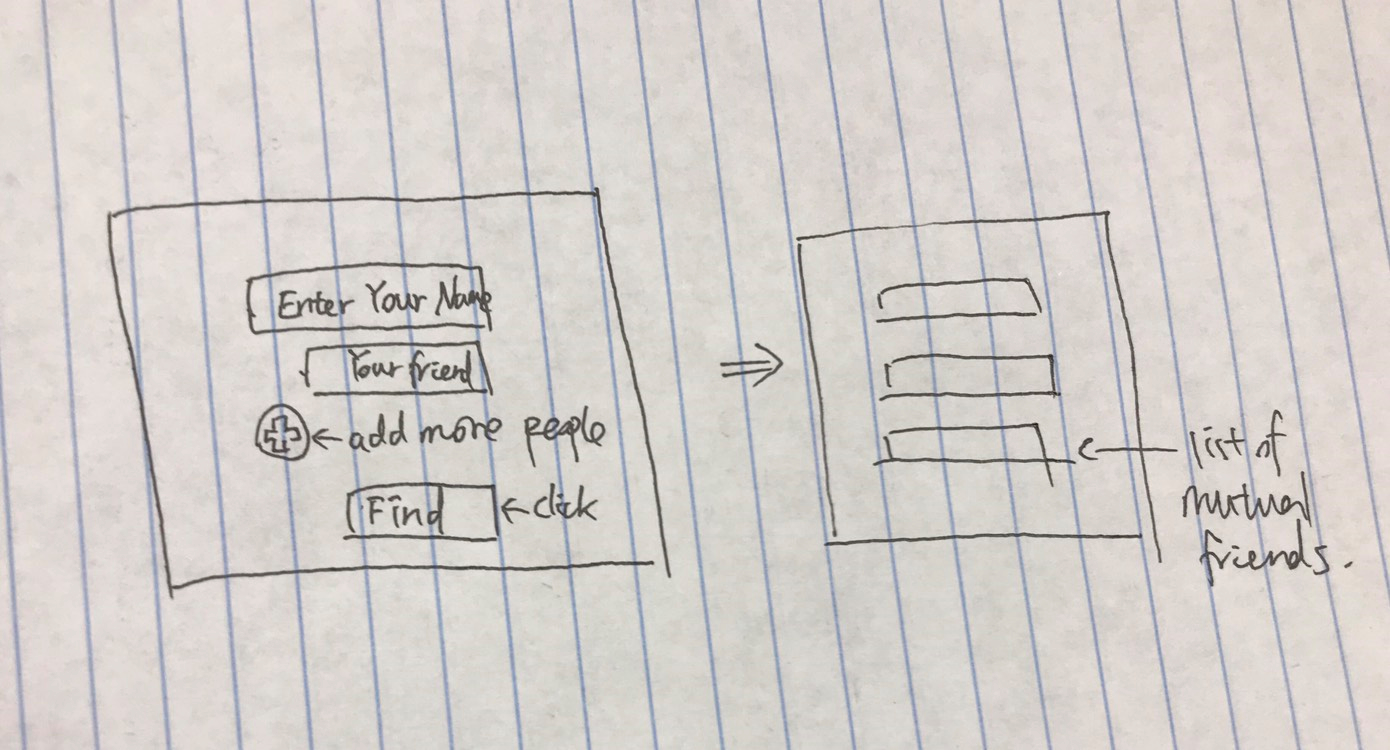 Enter Your Name
Your friend
← add more people
Find
← click
⇒
← list of
mutual
friends.